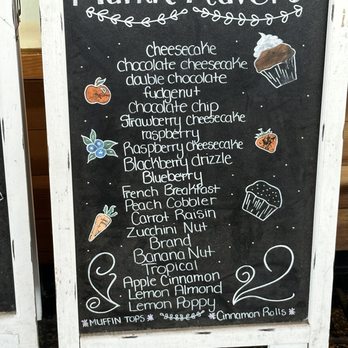 cheesecake
chocolate cheesecake
double chocolate
fudgenut
chocolate chip
Strawberry cheesecake
raspberry
Raspberry cheesecake
Blackberry drizzle
Blueberry
French Breakfast
Peach Cobbler
Carrot Raisin
Zucchini Nut
Brand
Banana Nut
Tropical
Apple Cinnamon
Lemon Almond
Lemon Poppy
MUFFIN TOPS
Cinnamon Rolls